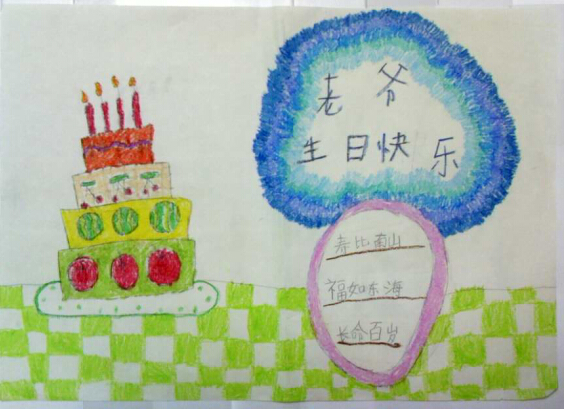 老爷
生日快乐
寿比南山
福如东海
长命百岁